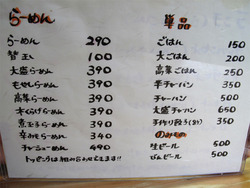 らーめん
らーめん 290
替玉 100
大盛らーめん 390
もやしらーめん 390
高菜らーめん 390
木くらげらーめん 390
煮玉子らーめん 390
辛みそらーめん 340
チャーシューメン 490
トッピングは組み合わせできます!!
単品
ごはん 150
大ごはん 200
高菜ごはん 250
半チャーハン 350
チャーハン 500
大盛チャーハン 650
手作り餃子 350
のみもの
生ビール 500
びんビール 500